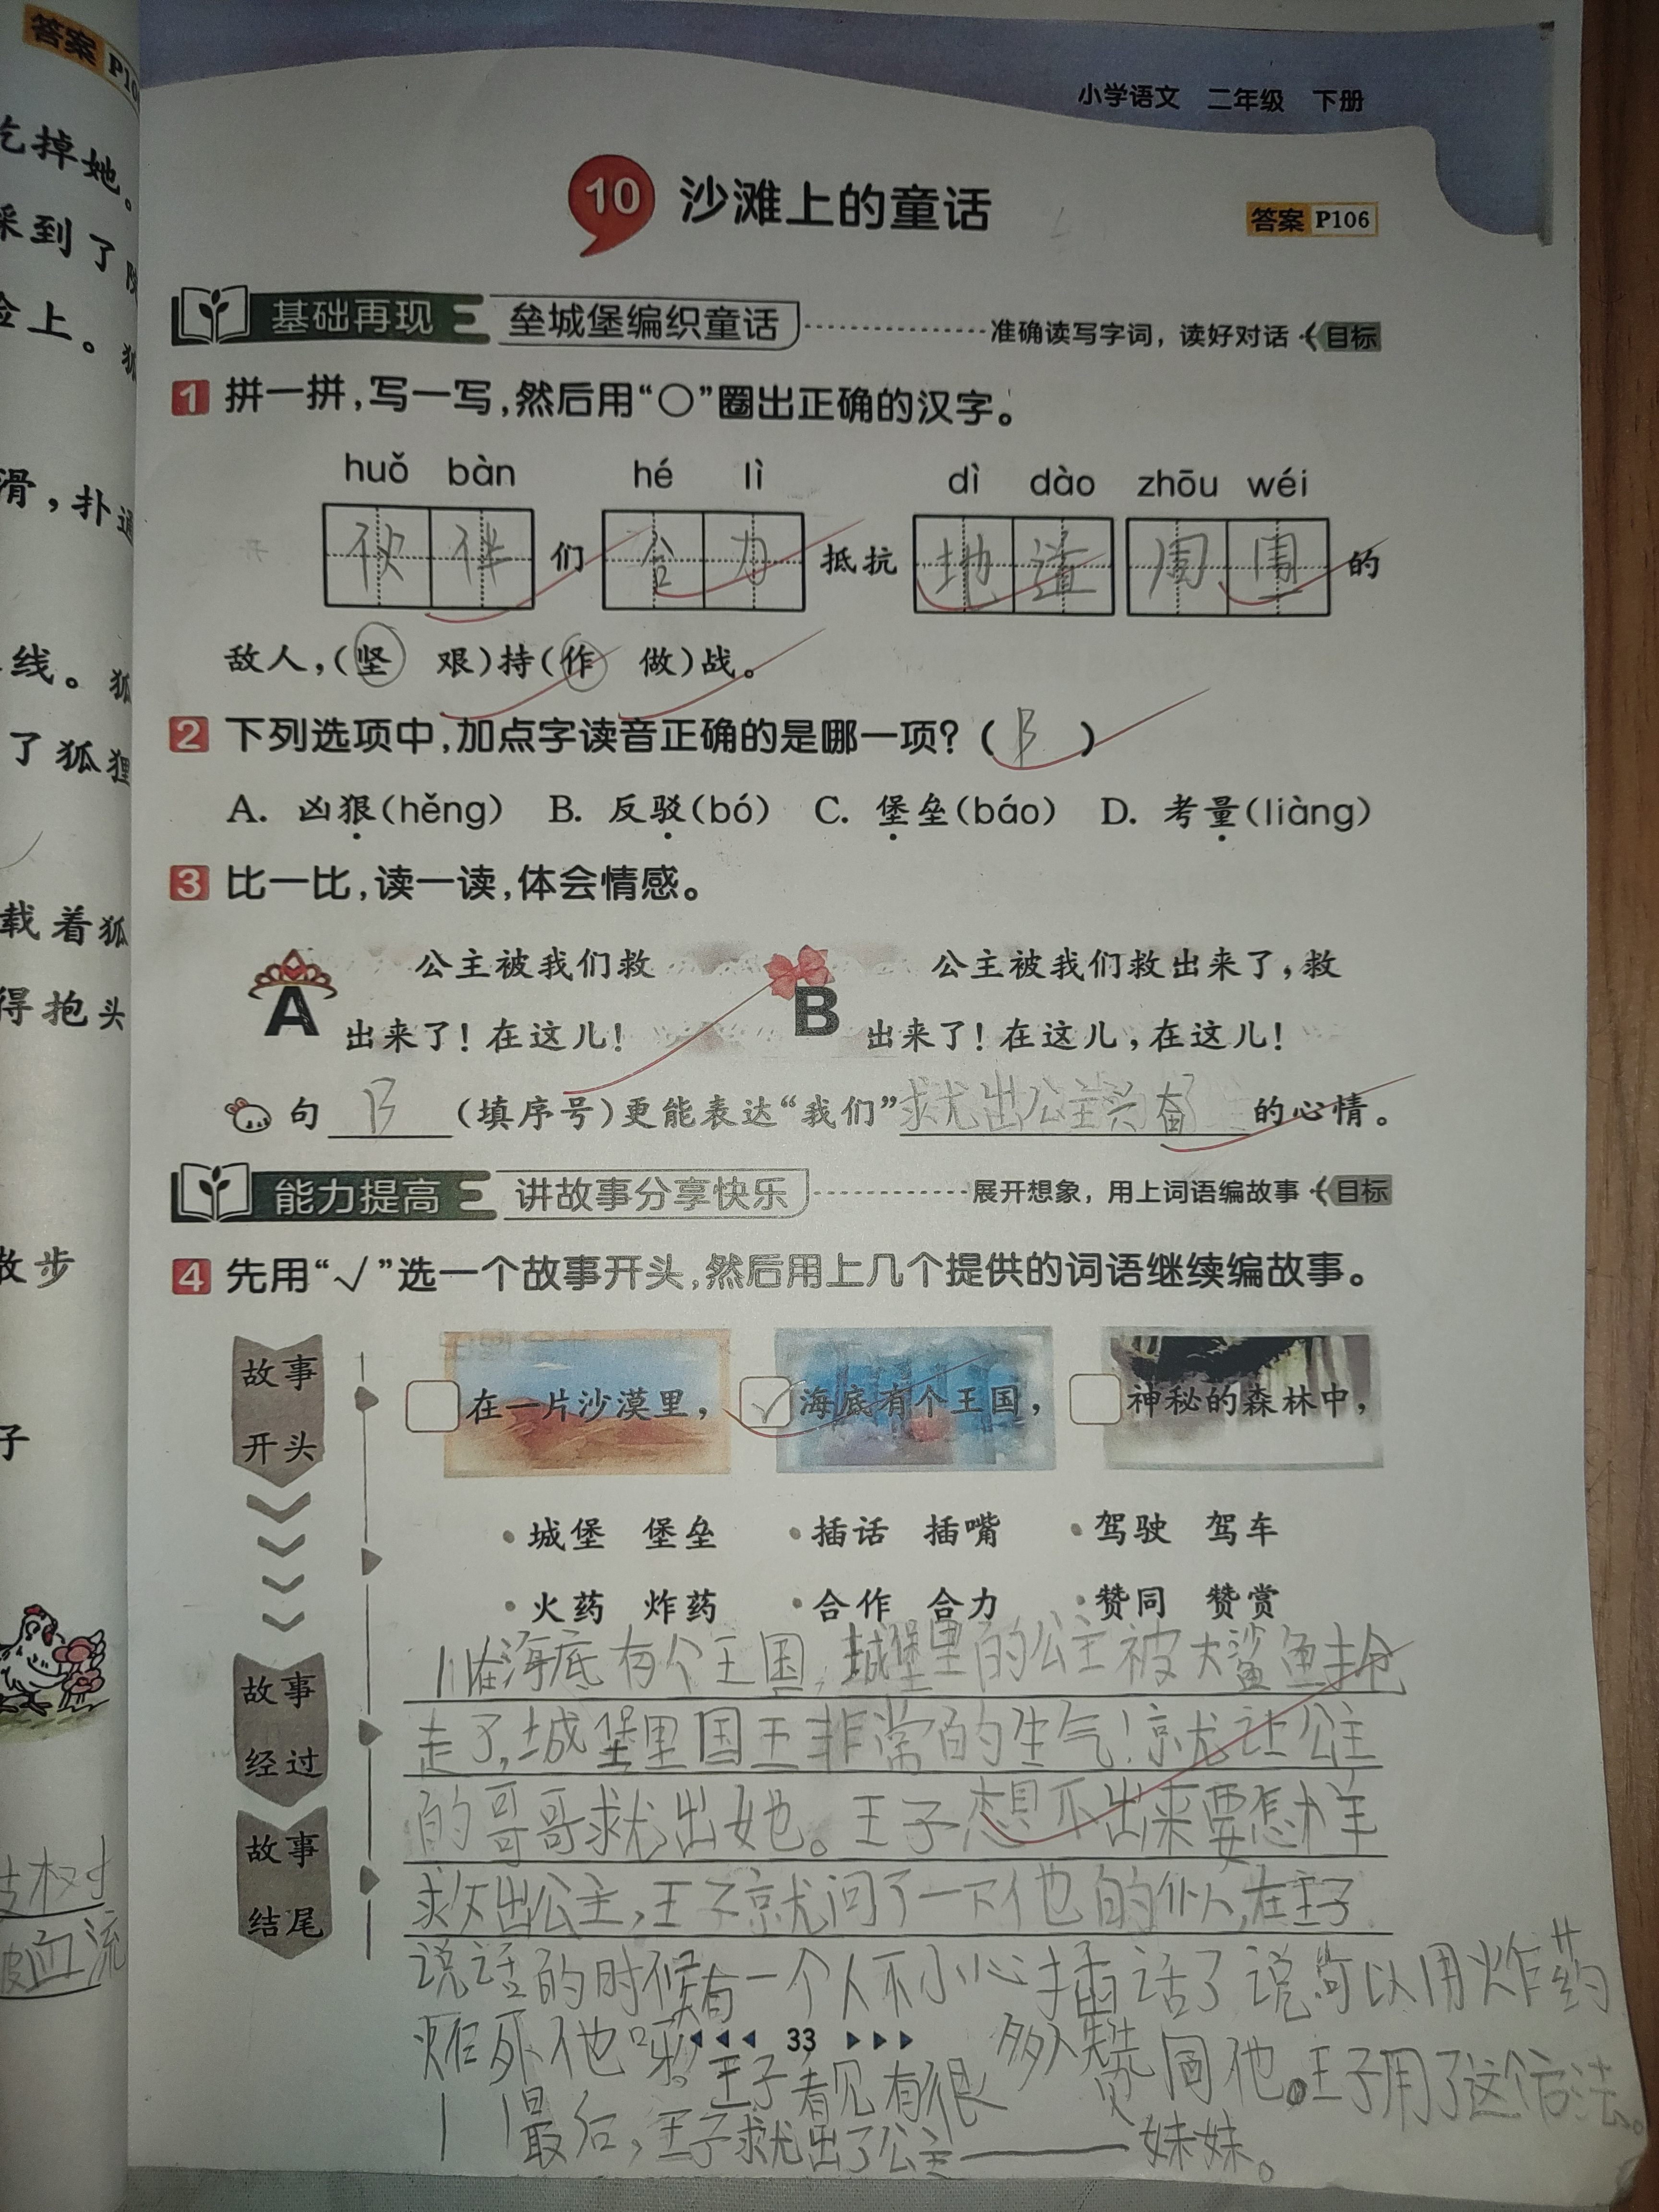 答案 P10
吃掉她。
踩到了
脸上。狐
滑，扑通
线。狐
了狐狸
载着狐
得抱头
散步
子
皮血流
小学语文 二年级 下册
10 沙滩上的童话
答案 P106
基础再现 垒城堡编织童话 准确读写字词，读好对话 目标
1 拼一拼，写一写，然后用“○”圈出正确的汉字。
huǒ bàn hé lì dì dào zhōu wéi
伙伴们合力抵抗地道周围的
敌人，(坚 艰)持(作 做)战。
2 下列选项中，加点字读音正确的是哪一项？( B )
A. 凶狠(hěng) B. 反驳(bó) C. 堡垒(báo) D. 考量(liàng)
3 比一比，读一读，体会情感。
A 公主被我们救
出来了！在这儿！
B 公主被我们救出来了，救
出来了！在这儿，在这儿！
句 B (填序号)更能表达“我们”救出公主兴奋的心情。
能力提高 讲故事分享快乐 展开想象，用上词语编故事 目标
4 先用“√”选一个故事开头，然后用上几个提供的词语继续编故事。
故事
开头
在一片沙漠里， √ 海底有个王国， 神秘的森林中，
·城堡 堡垒 ·插话 插嘴 ·驾驶 驾车
·火药 炸药 ·合作 合力 ·赞同 赞赏
故事
经过
故事
结尾
在海底有个王国，城堡里的公主被大鲨鱼抢
走了，城堡里国王非常的生气！就让公主
的哥哥救出她。王子想不出来要怎样
救出公主，王子就问了一下他的仆人，在王子
说话的时候有一个人不小心插话了说可以用炸药
炸死他呀。王子看见有很多人赞同他。王子用了这个方法。
最后，王子救出了公主——妹妹。
33